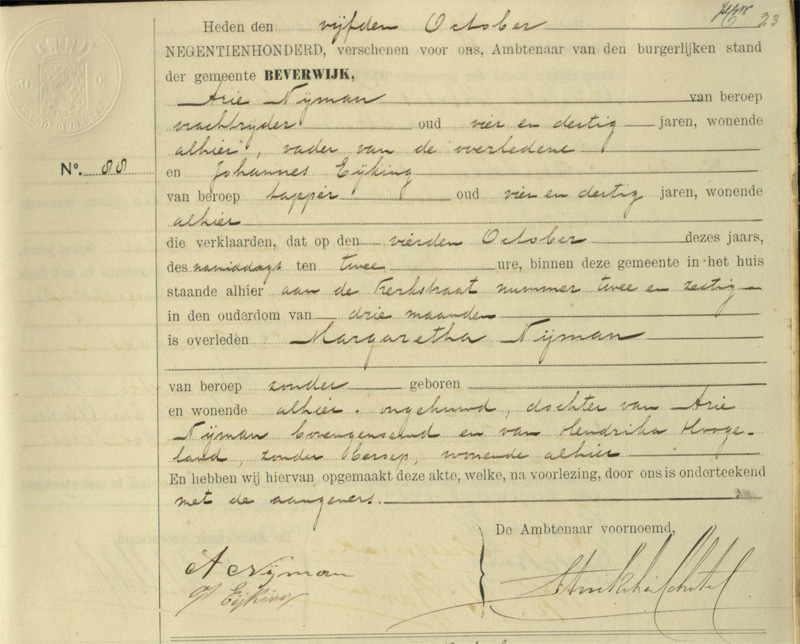 23
Heden den vijfden October
NEGENTIENHONDERD, verschenen voor ons, Ambtenaar van den burgerlijken stand
der gemeente BEVERWIJK,
Arie Nijman van beroep
vrachtrijder oud vier en dertig jaren, wonende
alhier, vader van de overledene
No. 88
en Johannes Eijking
van beroep tapper oud vier en dertig jaren, wonende
alhier
die verklaarden, dat op den vierden October dezes jaars,
des namiddags ten twee ure, binnen deze gemeente in het huis
staande alhier aan de Kerkstraat nummer twee en zestig
in den ouderdom van drie maanden
is overleden Margaretha Nijman
van beroep zonder geboren
en wonende alhier. ongehuwd, dochter van Arie
Nijman bovengenoemd en van Hendrika Hooge-
land, zonder beroep, wonende alhier
En hebben wij hiervan opgemaakt deze akte, welke, na voorlezing, door ons is onderteekend
met de aangevers.
De Ambtenaar voornoemd,
A Nijman
Eijking